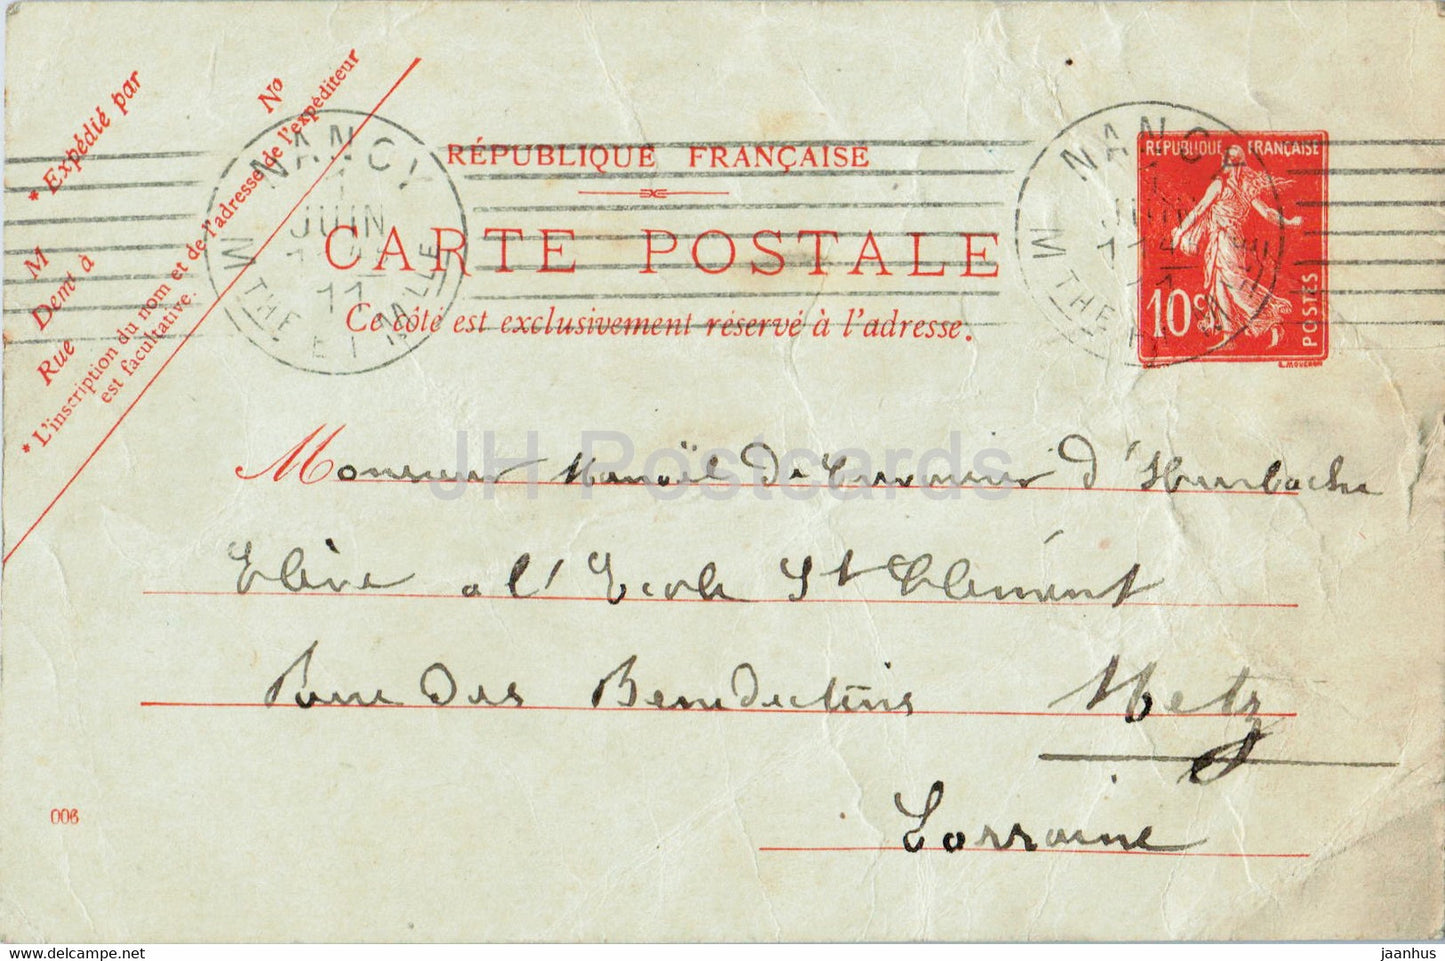 * Expédié par
Nº
M
Demt à
Rue
* L'inscription du nom et de l'adresse de l'expéditeur
est facultative.
RÉPUBLIQUE FRANÇAISE
CARTE POSTALE
Ce côté est exclusivement réservé à l'adresse.
NANCY
JUIN
11
MTHE ET MLLE
NANCY
MTHE ET MLLE
RÉPUBLIQUE FRANÇAISE
10c
POSTES
L. MOUCHON
JH Postcards
Monsieur Manoël de d'Hurbache
Elève a l'Ecole St Clément
Rue des Benedictins Metz
Lorraine
006
jaanhus